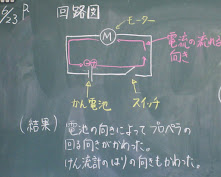 6/23 R 回路図
モーター
M
電流の流れる
向き
かん電池 スイッチ
(結果) 電池の向きによってプロペラの
回る向きがかわった。
けん流計のはりの向きもかわった。